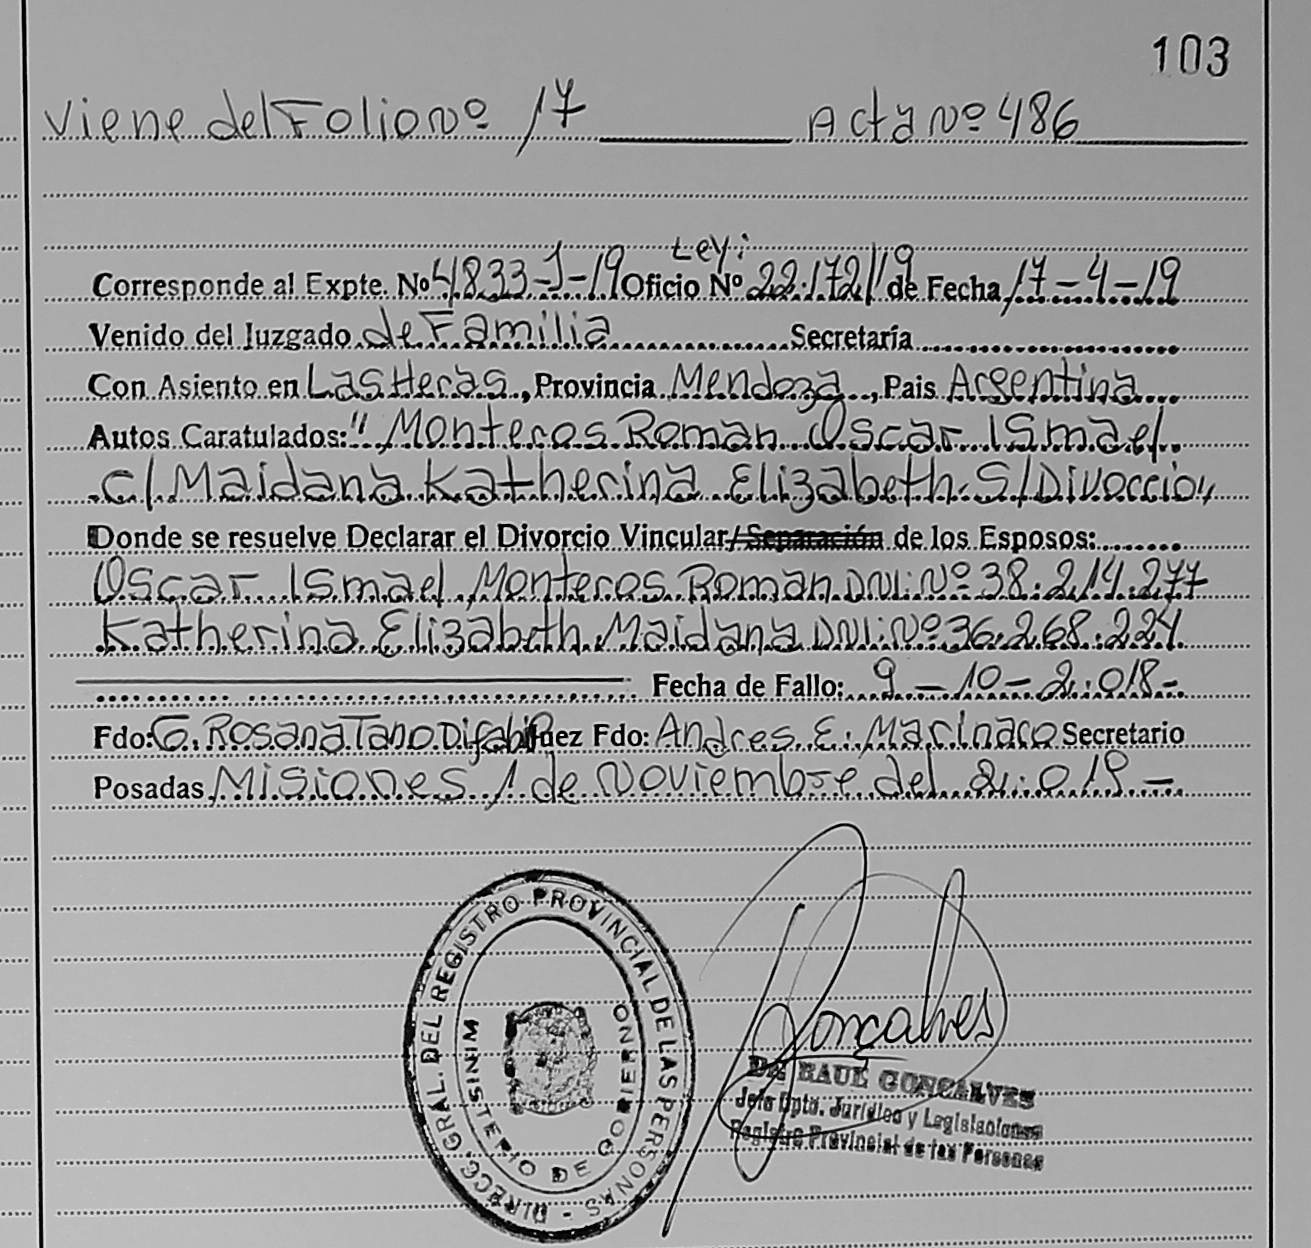 103
Viene del Folio nº 17 Acta nº 486
Ley:
Corresponde al Expte. Nº 4833-J-19 Oficio Nº 22.172/19 de Fecha 17-4-19
Venido del Juzgado de Familia Secretaría
Con Asiento en Las Heras, Provincia Mendoza, Pais Argentina
Autos Caratulados: "Monteros Roman Oscar Ismael
c/ Maidana Katherina Elizabeth S/Divorcio"
Donde se resuelve Declarar el Divorcio Vincular/Separación de los Esposos:
Oscar Ismael Monteros Roman DNI: Nº 38.214.277
Katherina Elizabeth Maidana DNI: Nº 36.268.224.
Fecha de Fallo: 9-10-2.018-
Fdo: G. Rosana Tano Difabio Juez Fdo: Andres E. Marinaro Secretario
Posadas, Misiones 1 de Noviembre del 2.019-
DIRECC. GRAL. DEL REGISTRO PROVINCIAL DE LAS PERSONAS -
MINISTERIO DE GOBIERNO
Gonçalves
Dr RAUL GONCALVES
Jefe Dpto. Jurídico y Legislaciones
Registro Provincial de las Personas